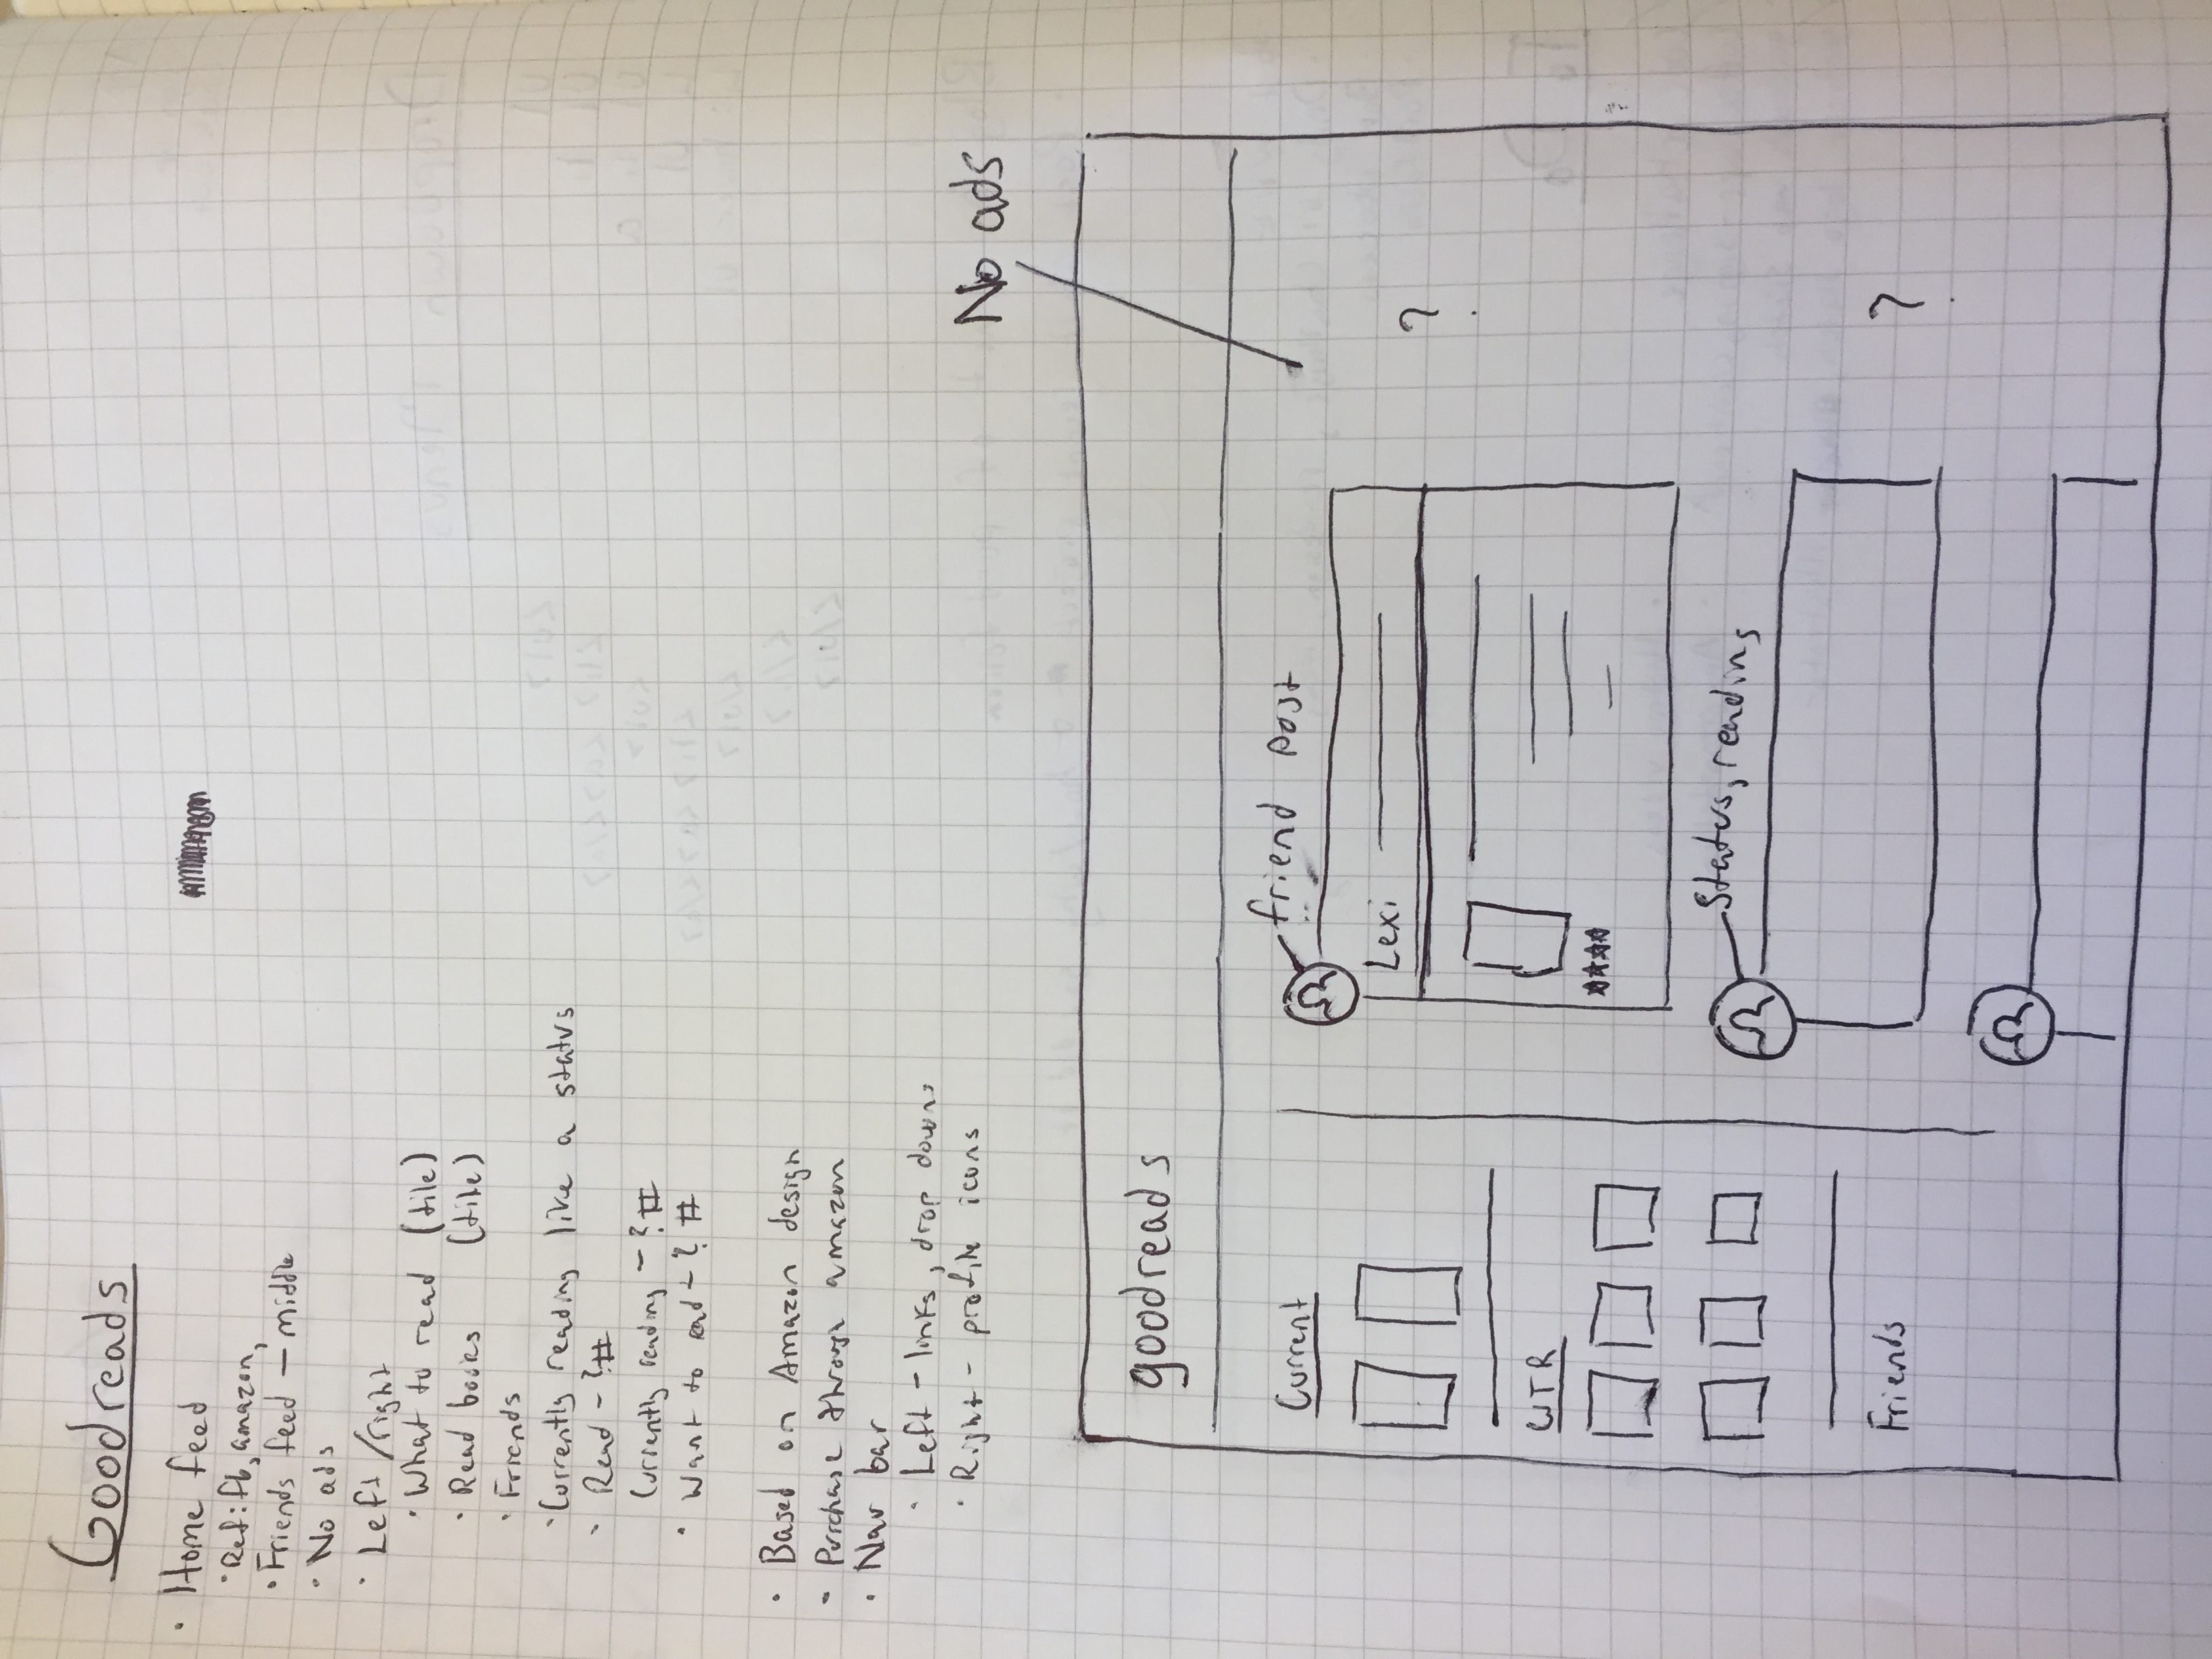 Goodreads
• Home feed
• Ref: fb, amazon,
• Friends feed — middle
• No ads
• Left/right
• What to read (tile)
• Read books (tile)
• Friends
• Currently reading like a status
• Read - ? #
Currently reading - ? #
• Want to read - ? #
• Based on Amazon design
• Purchase through amazon
• Nav bar
• Left - links, drop downs
• Right - profile icons
No ads
goodreads
Current
friend post
Lexi
?
WTR
Status, reading
Friends
?